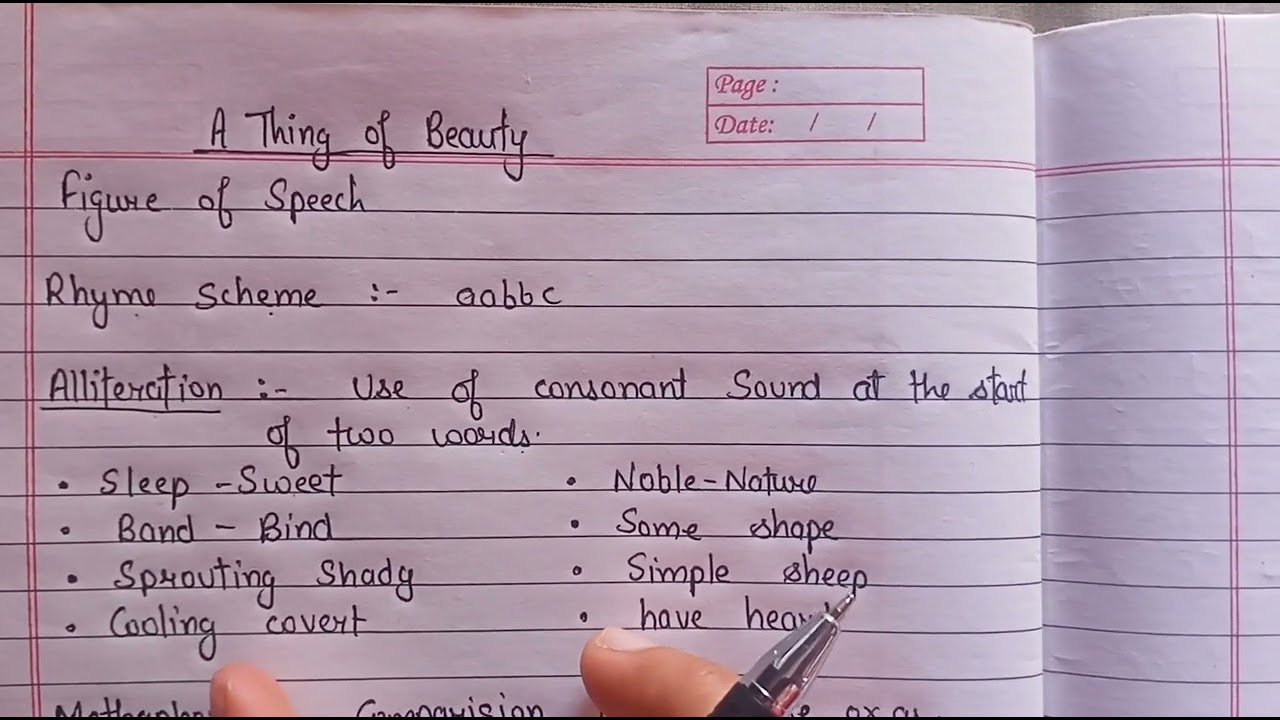 Page :
A Thing of Beauty
Date: / /
Figure of Speech
Rhyme Scheme :- aabbc
Alliteration :- Use of consonant Sound at the start
of two words.
• Sleep - Sweet
• Noble - Nature
• Band - Bind
• Some shape
• Sprouting Shady
• Simple sheep
• Cooling covert
• have
Comparision